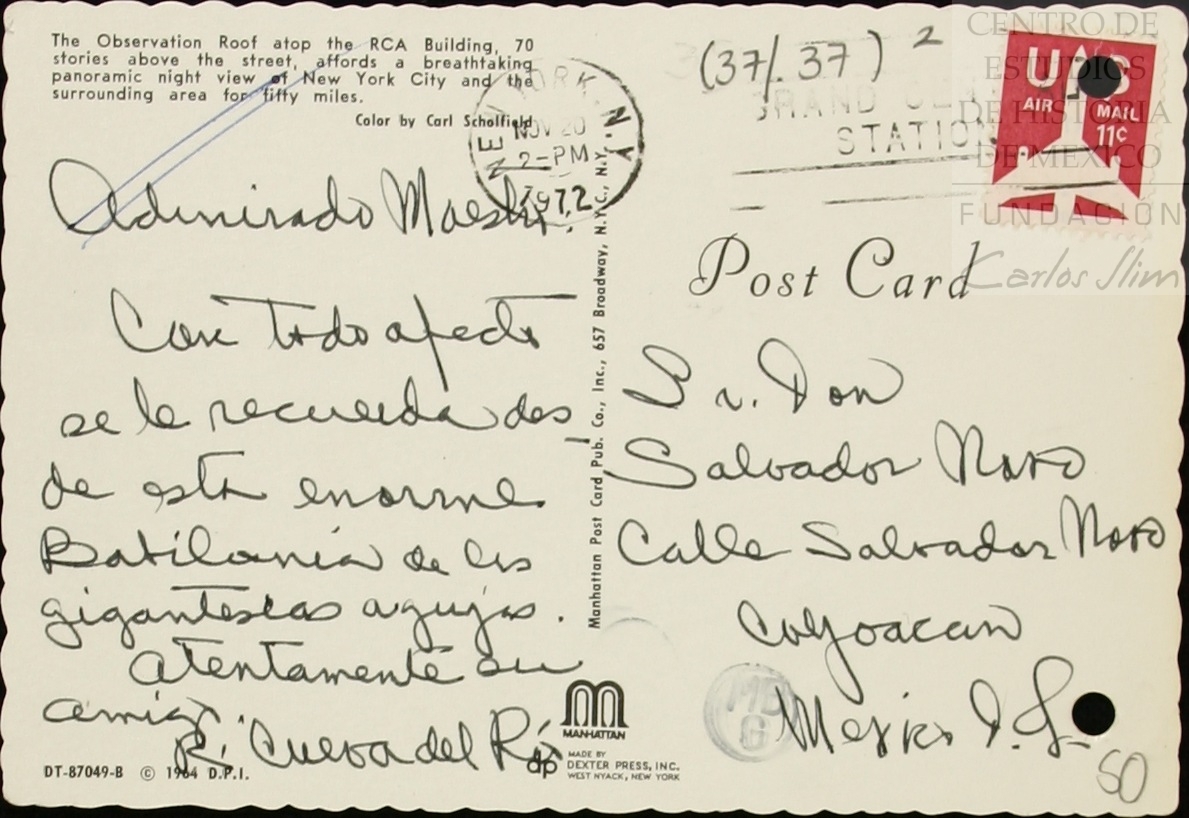 The Observation Roof atop the RCA Building, 70
stories above the street, affords a breathtaking
panoramic night view of New York City and the
surrounding area for fifty miles.
Color by Carl Scholfield
Admirado Maestro.
Con todo afecto
se le recuerda des
de esta enorme
Babilonia de las
gigantescas agujas.
Atentamente su
amigo.
R. Cueva del Río
DT-87049-B © 1964 D.P.I.
NEW YORK, N.Y.
NOV 20
2-PM
1972
Manhattan Post Card Pub. Co., Inc., 657 Broadway, N.Y.C., N.Y.
MANHATTAN
dp
MADE BY
DEXTER PRESS, INC.
WEST NYACK, NEW YORK
(37/.37) 2
GRAND
STATION
US
AIR MAIL
11c
CENTRO DE
ESTUDIOS
DE HISTORIA
DE MEXICO
FUNDACIÓN
Carlos Slim
Post Card
Sr. Don
Salvador Novo
Calle Salvador Novo
Coyoacan
Mexico D.F.
MD
G
50